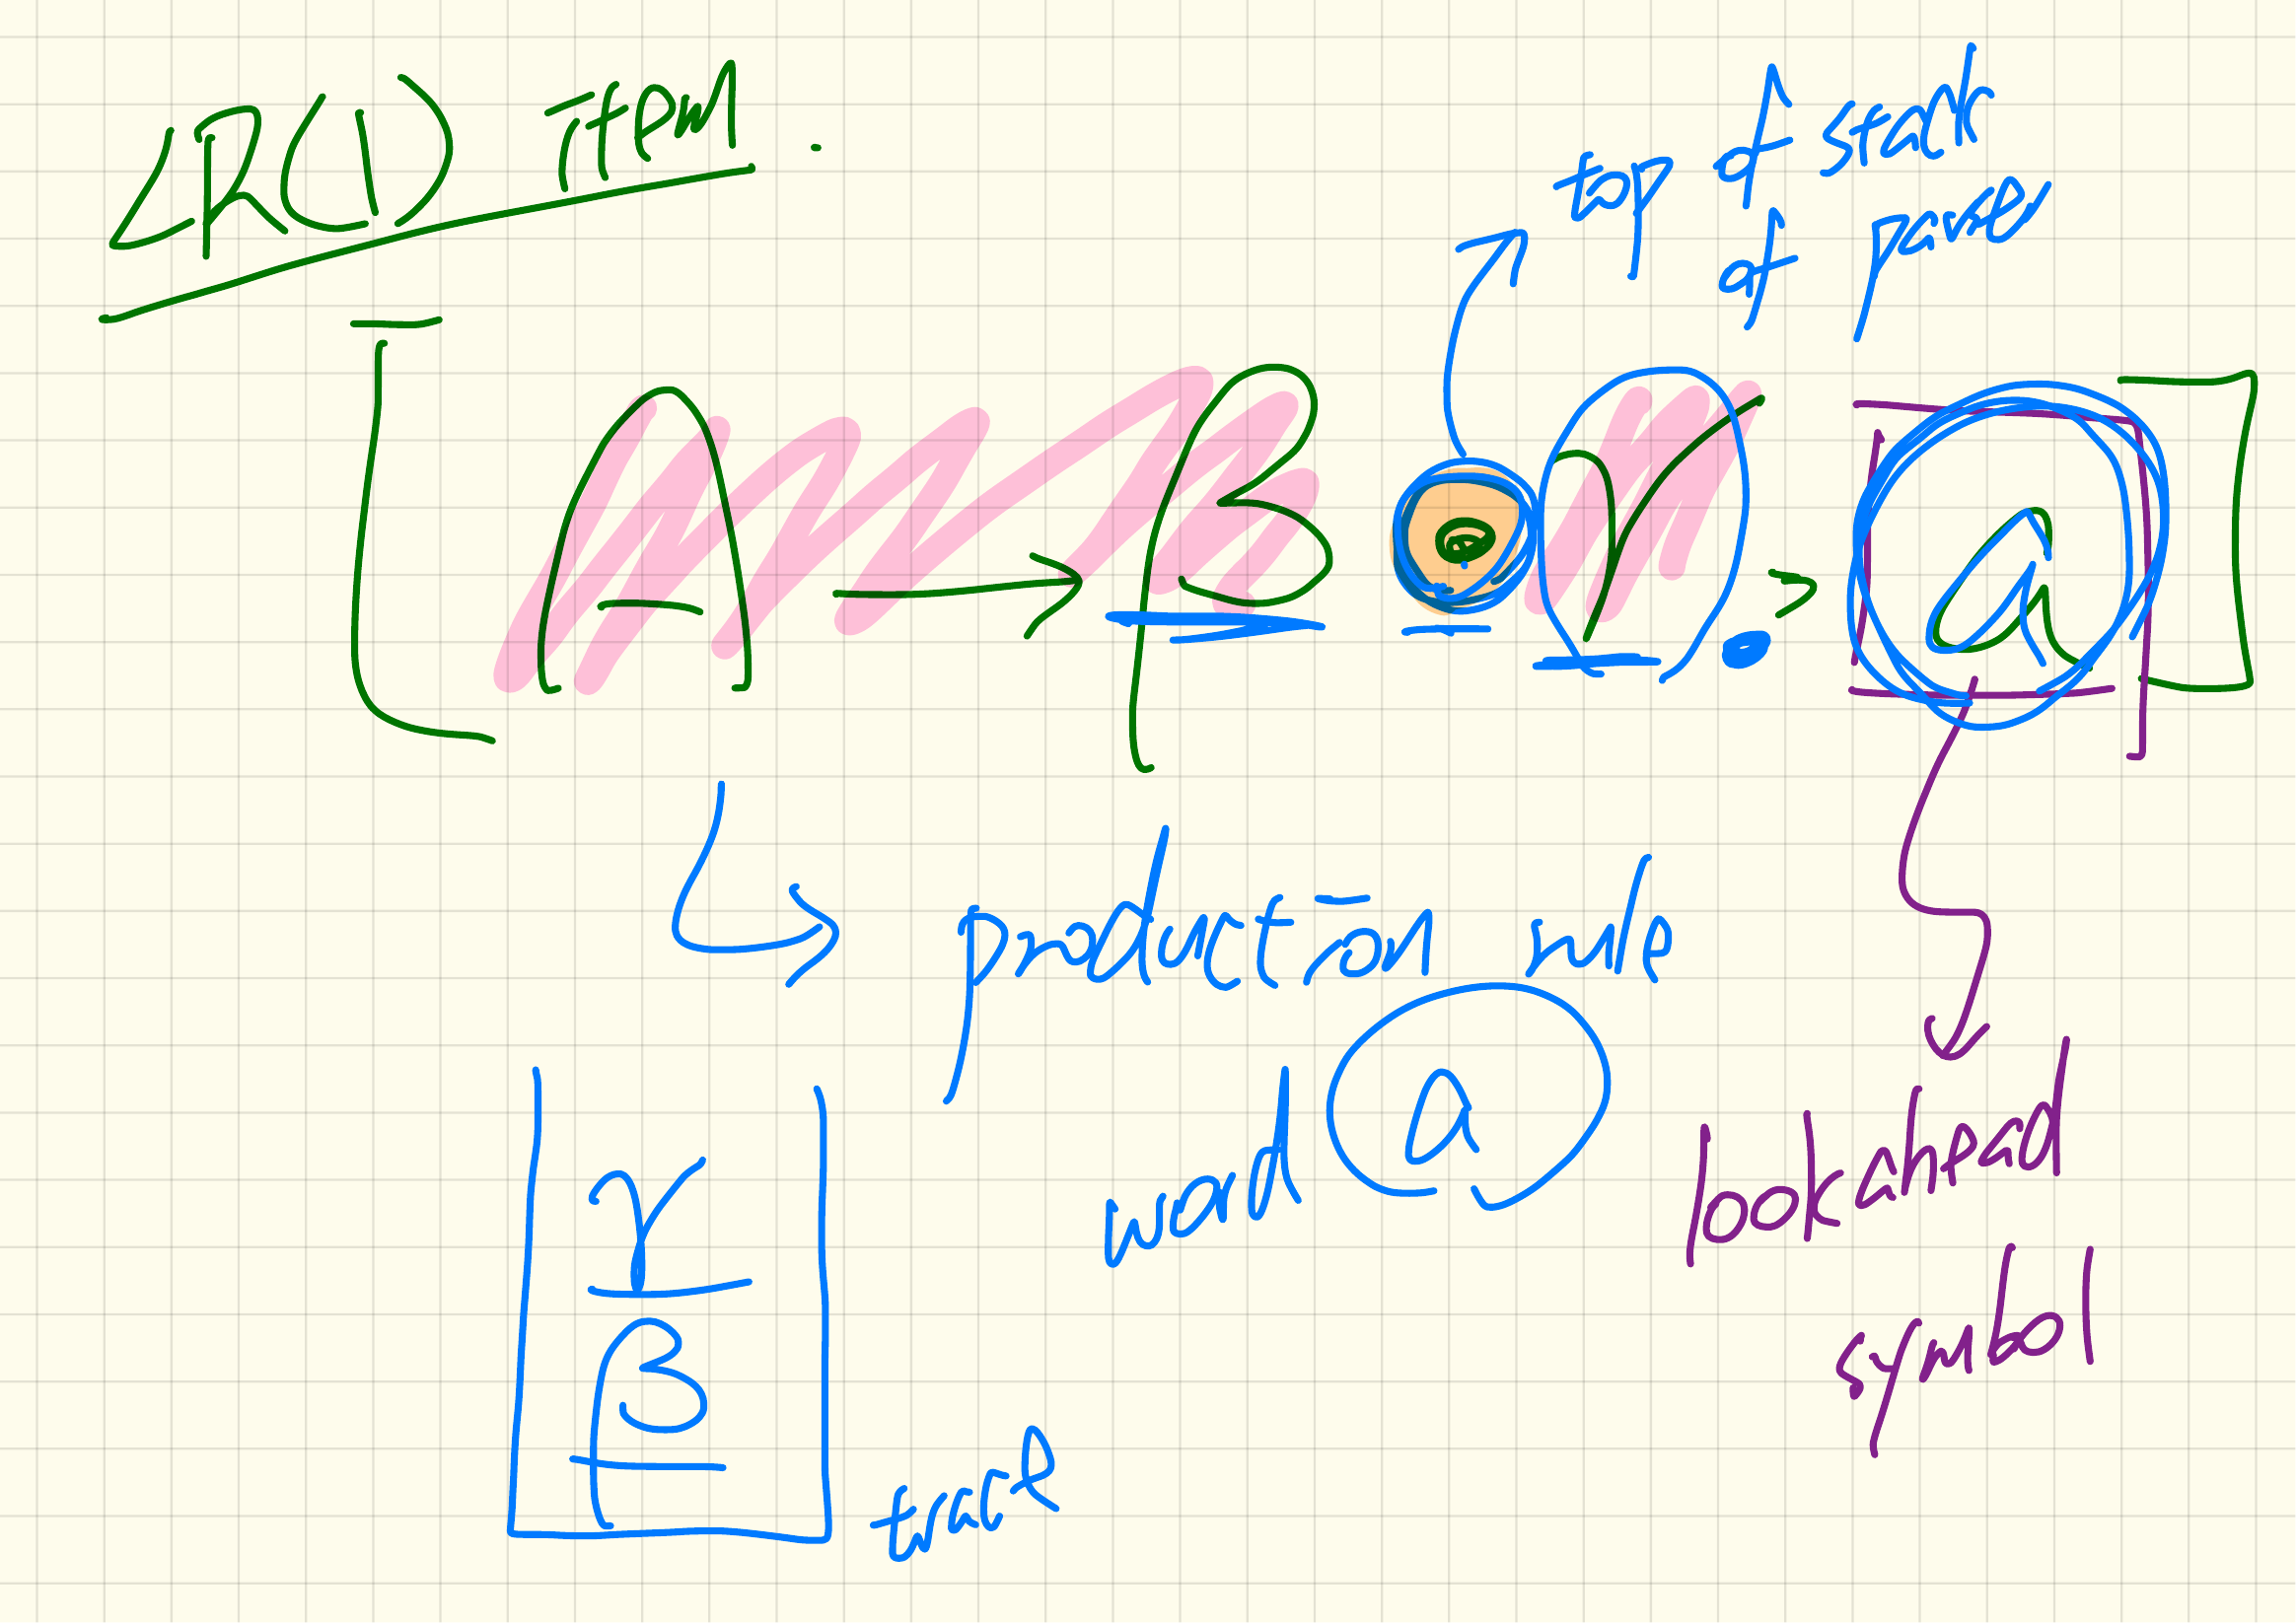 LR(1) Item.
top of stack
of parse
[A → β • γ, a]
production rule
word a
lookahead
symbol
γ
β
trace